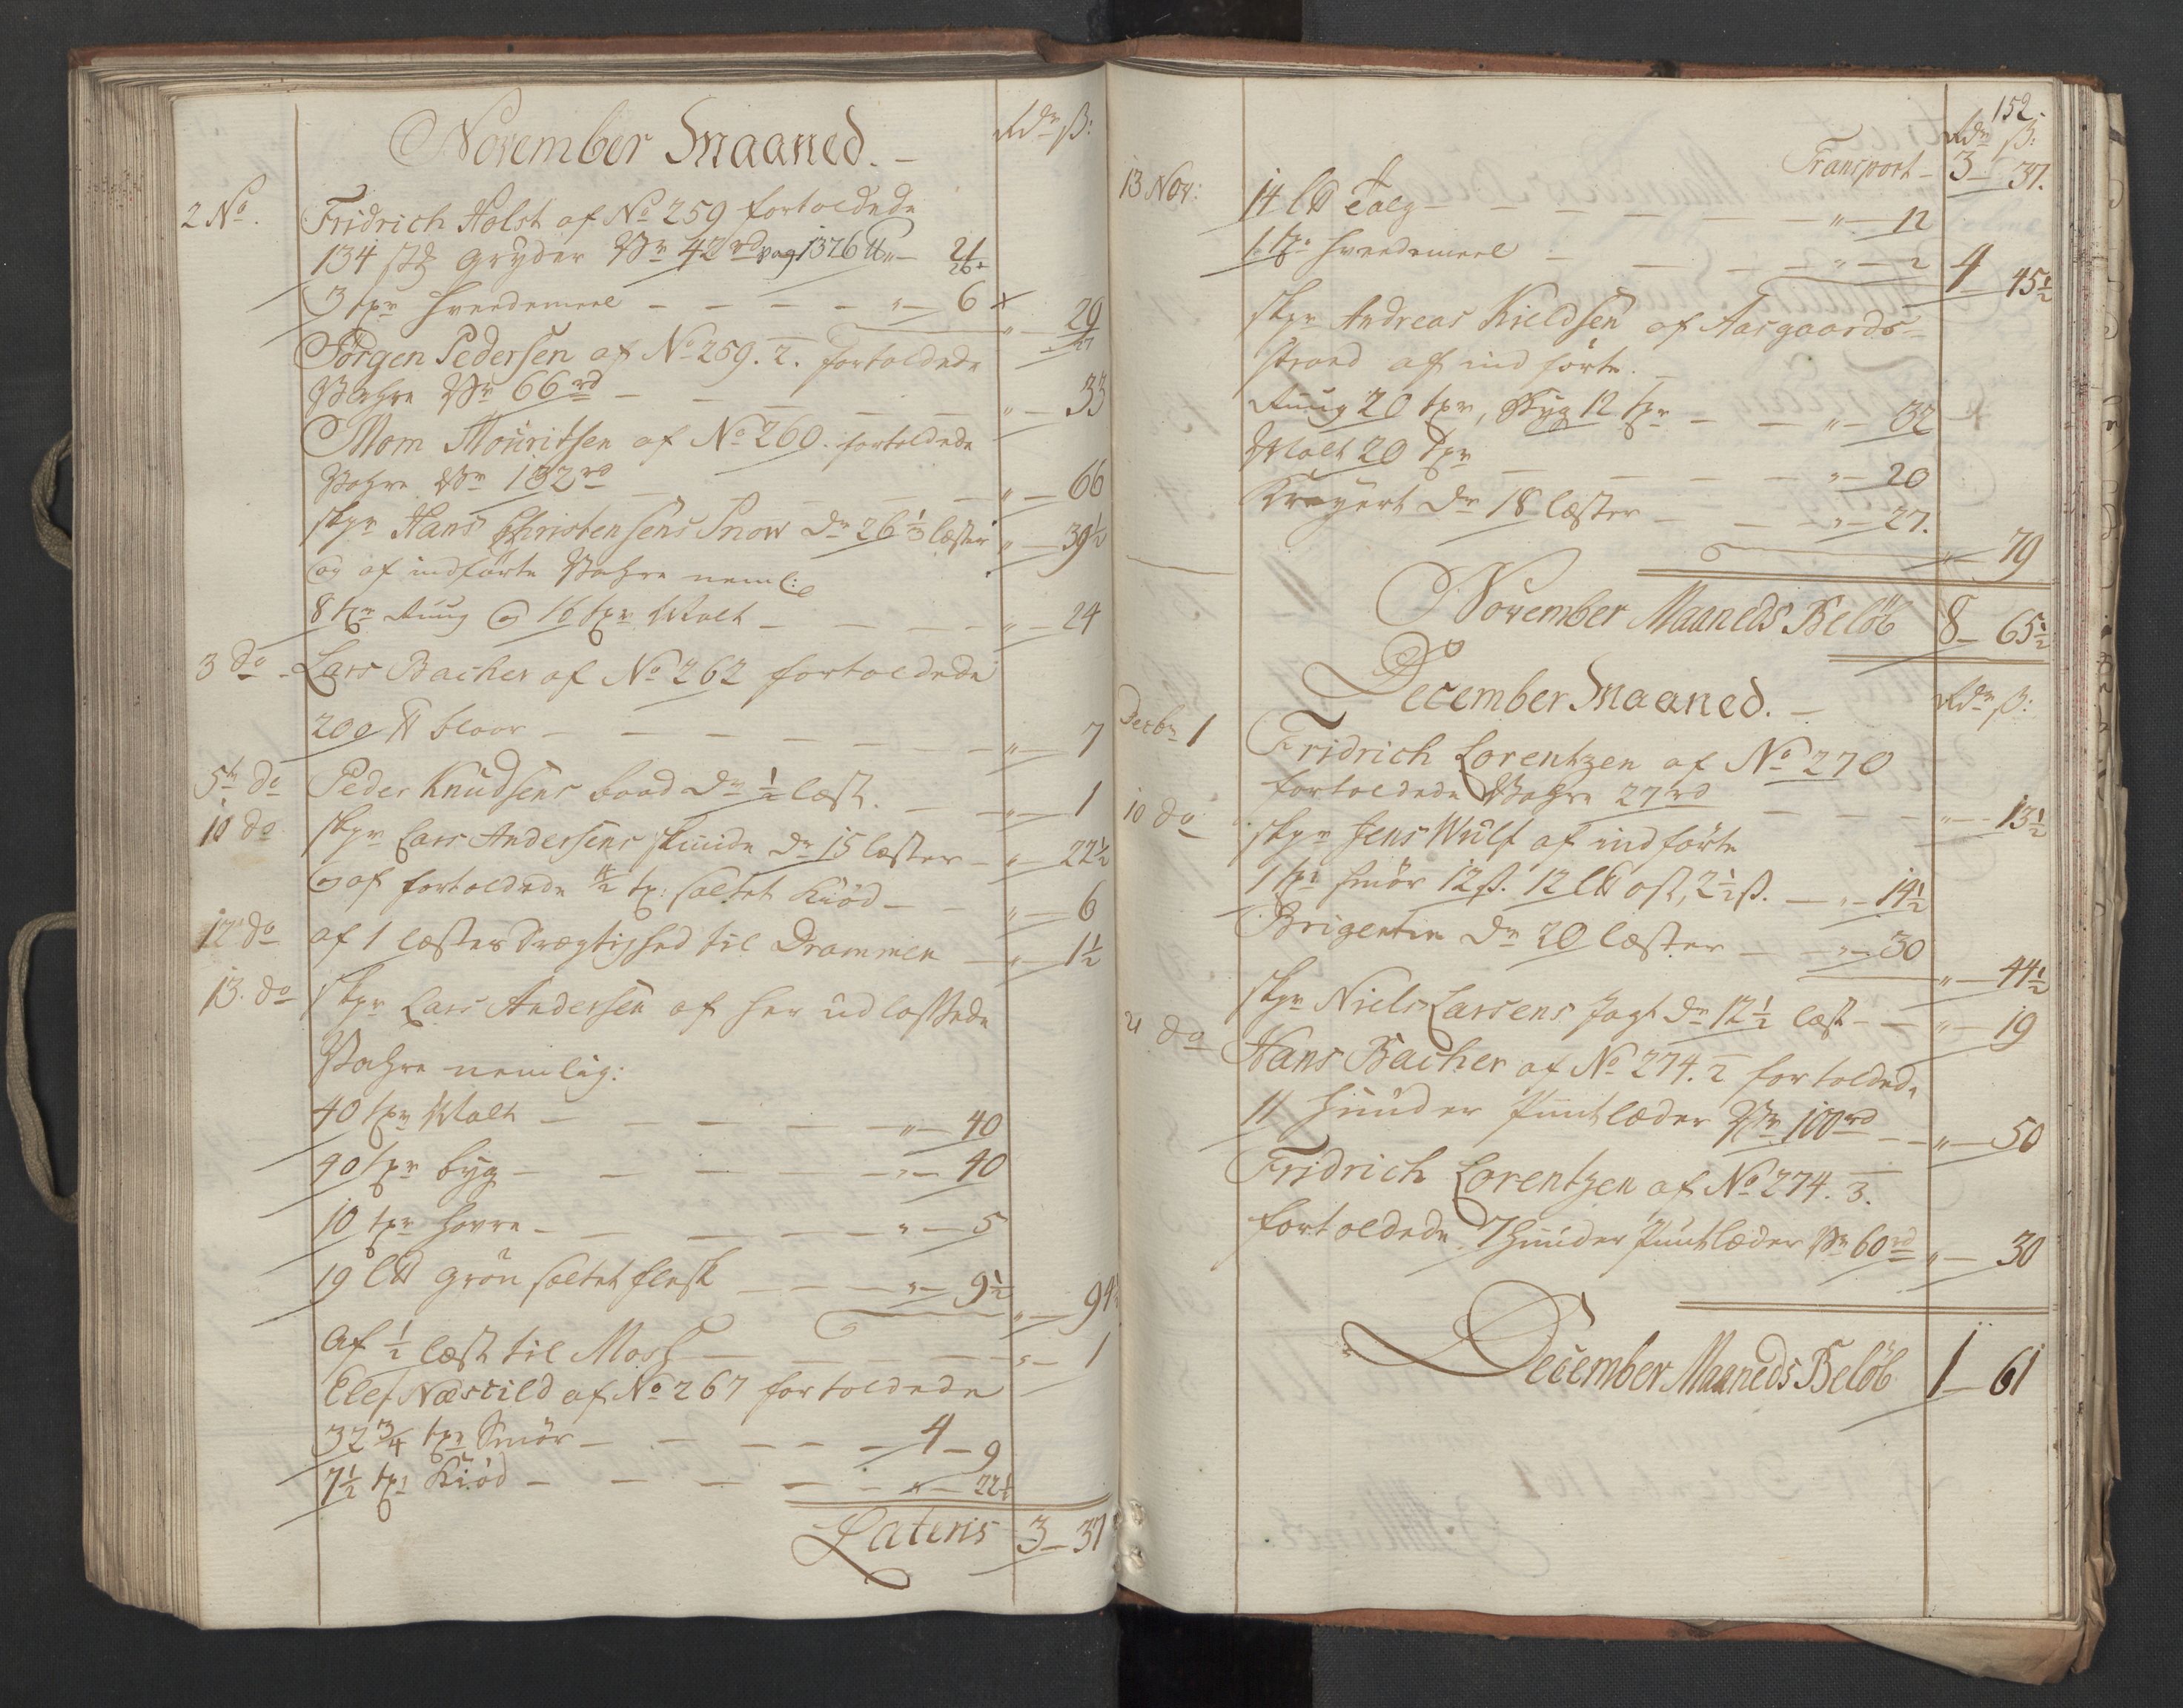 November Maaned.
Rdr ß:
2 No.
Fridrich Holst af No 259 fortoldede
134 st gryder Vr 42 rd vog 1326 ℔ " 21
26.
3 tpr hvedemeel " 6
" 29
Jörgen Pedersen af No 259. 2. fortoldede
Vahre Vr 66 rd " 33
Mom Mouritsen af No 260. fortoldede
Vahre Vr 132 rd " 66
skpr Hans Christensens Snow dr 26 1/3 læster " 39 1/2
og af indförte Vahre neml:
8 tpr Rüug og 16 tpr Malt " 24
3 do Lars Bacher af No 262 fortoldede
200 ℔ blaar " 7
5te do Peder Knudsens baad dr 1/2 læst. " 1
10 do skpr Lars Andersens skuude dr 15 læster " 22 1/2
og af fortoldede 12/2 tp: saltet Kiöd " 6
12 do af 1 læsters drægtighed til Drammen " 1 1/2
13. do skpr Lars Andersen af her udlossede
Vahre nemlig:
40 tpr Malt " 40
40 tpr byg " 40
10 tpr havre " 5
19 l℔ grön saltet flesk " 9 1/2
" 94 1/2
Af 1/2 læst til Moss " 1
Elef Næscild af No 267 fortoldede
32 3/4 tpr Smör 4 9
7 1/2 tpr Kiöd " 22 1/2
Lateris 3 37
152.
Rdr ß:
Transport 3 37.
13 Nov:
14 l℔ Talg " 12
1. tpr hvedemeel " 2
4 45 1/2
skpr Andreas Kieldsen af Aasgaards-
strand af indförte.
Rüug 20 tpr, Byg 12 tpr " 32
Malt 20 tpr " 20
Kreyert dr 18 læster " 27.
" 79
November Maaneds Belöb 8 65 1/2
December Maaned.
Rdr ß:
Decbr 1
Fridrich Lorentzen af No 270
fortoldede Vahre 27 rd " 13 1/2
10 do
skpr Jens Wulf af indförte
1 tpr smör 12 ß. 12 l℔ ost, 2 1/2 ß. " 14 1/2
Brigentin dr 20 læster " 30
" 44 1/2
skpr Niels Larsens Jagt dr 12 1/2 læst " 19
21 do
Hans Bacher af No 274. 2 fortoldede
11 huuder Puntlæder Vr 100 rd " 50
Fridrich Lorentzen af No 274. 3.
fortoldede 7 huuder Puntlæder Vr 60 rd " 30
December Maaneds Belöb 1 61